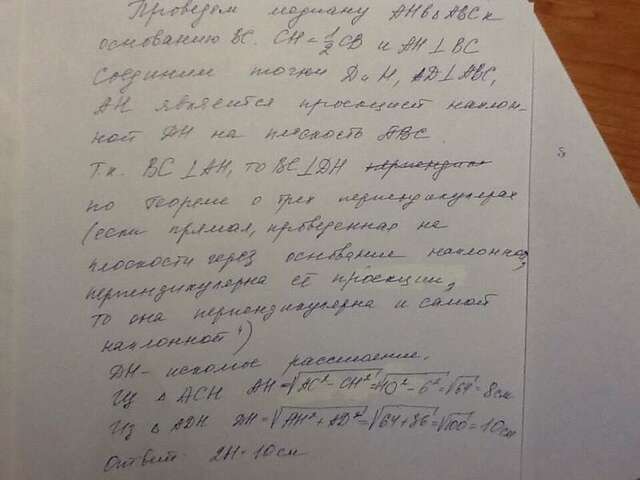 Проведем медиану AH в ∆ ABC к
основанию BC. CH = 1/2 CB и AH ⊥ BC
Соединим точки D и H, AD ⊥ ABC,
AH является проекцией наклон-
ной DH на плоскость ABC.
Т.к. BC ⊥ AH, то BC ⊥ DH
по теореме о трех перпендикулярах
(если прямая, проведенная на
плоскости через основание наклонной,
перпендикулярна её проекции,
то она перпендикулярна и самой
наклонной")
DH - искомое расстояние.
Из ∆ ACH AH = √AC² - CH² = √10² - 6² = √64 = 8 см
Из ∆ ADH DH = √AH² + AD² = √64 + 36 = √100 = 10 см
Ответ: DH = 10 см